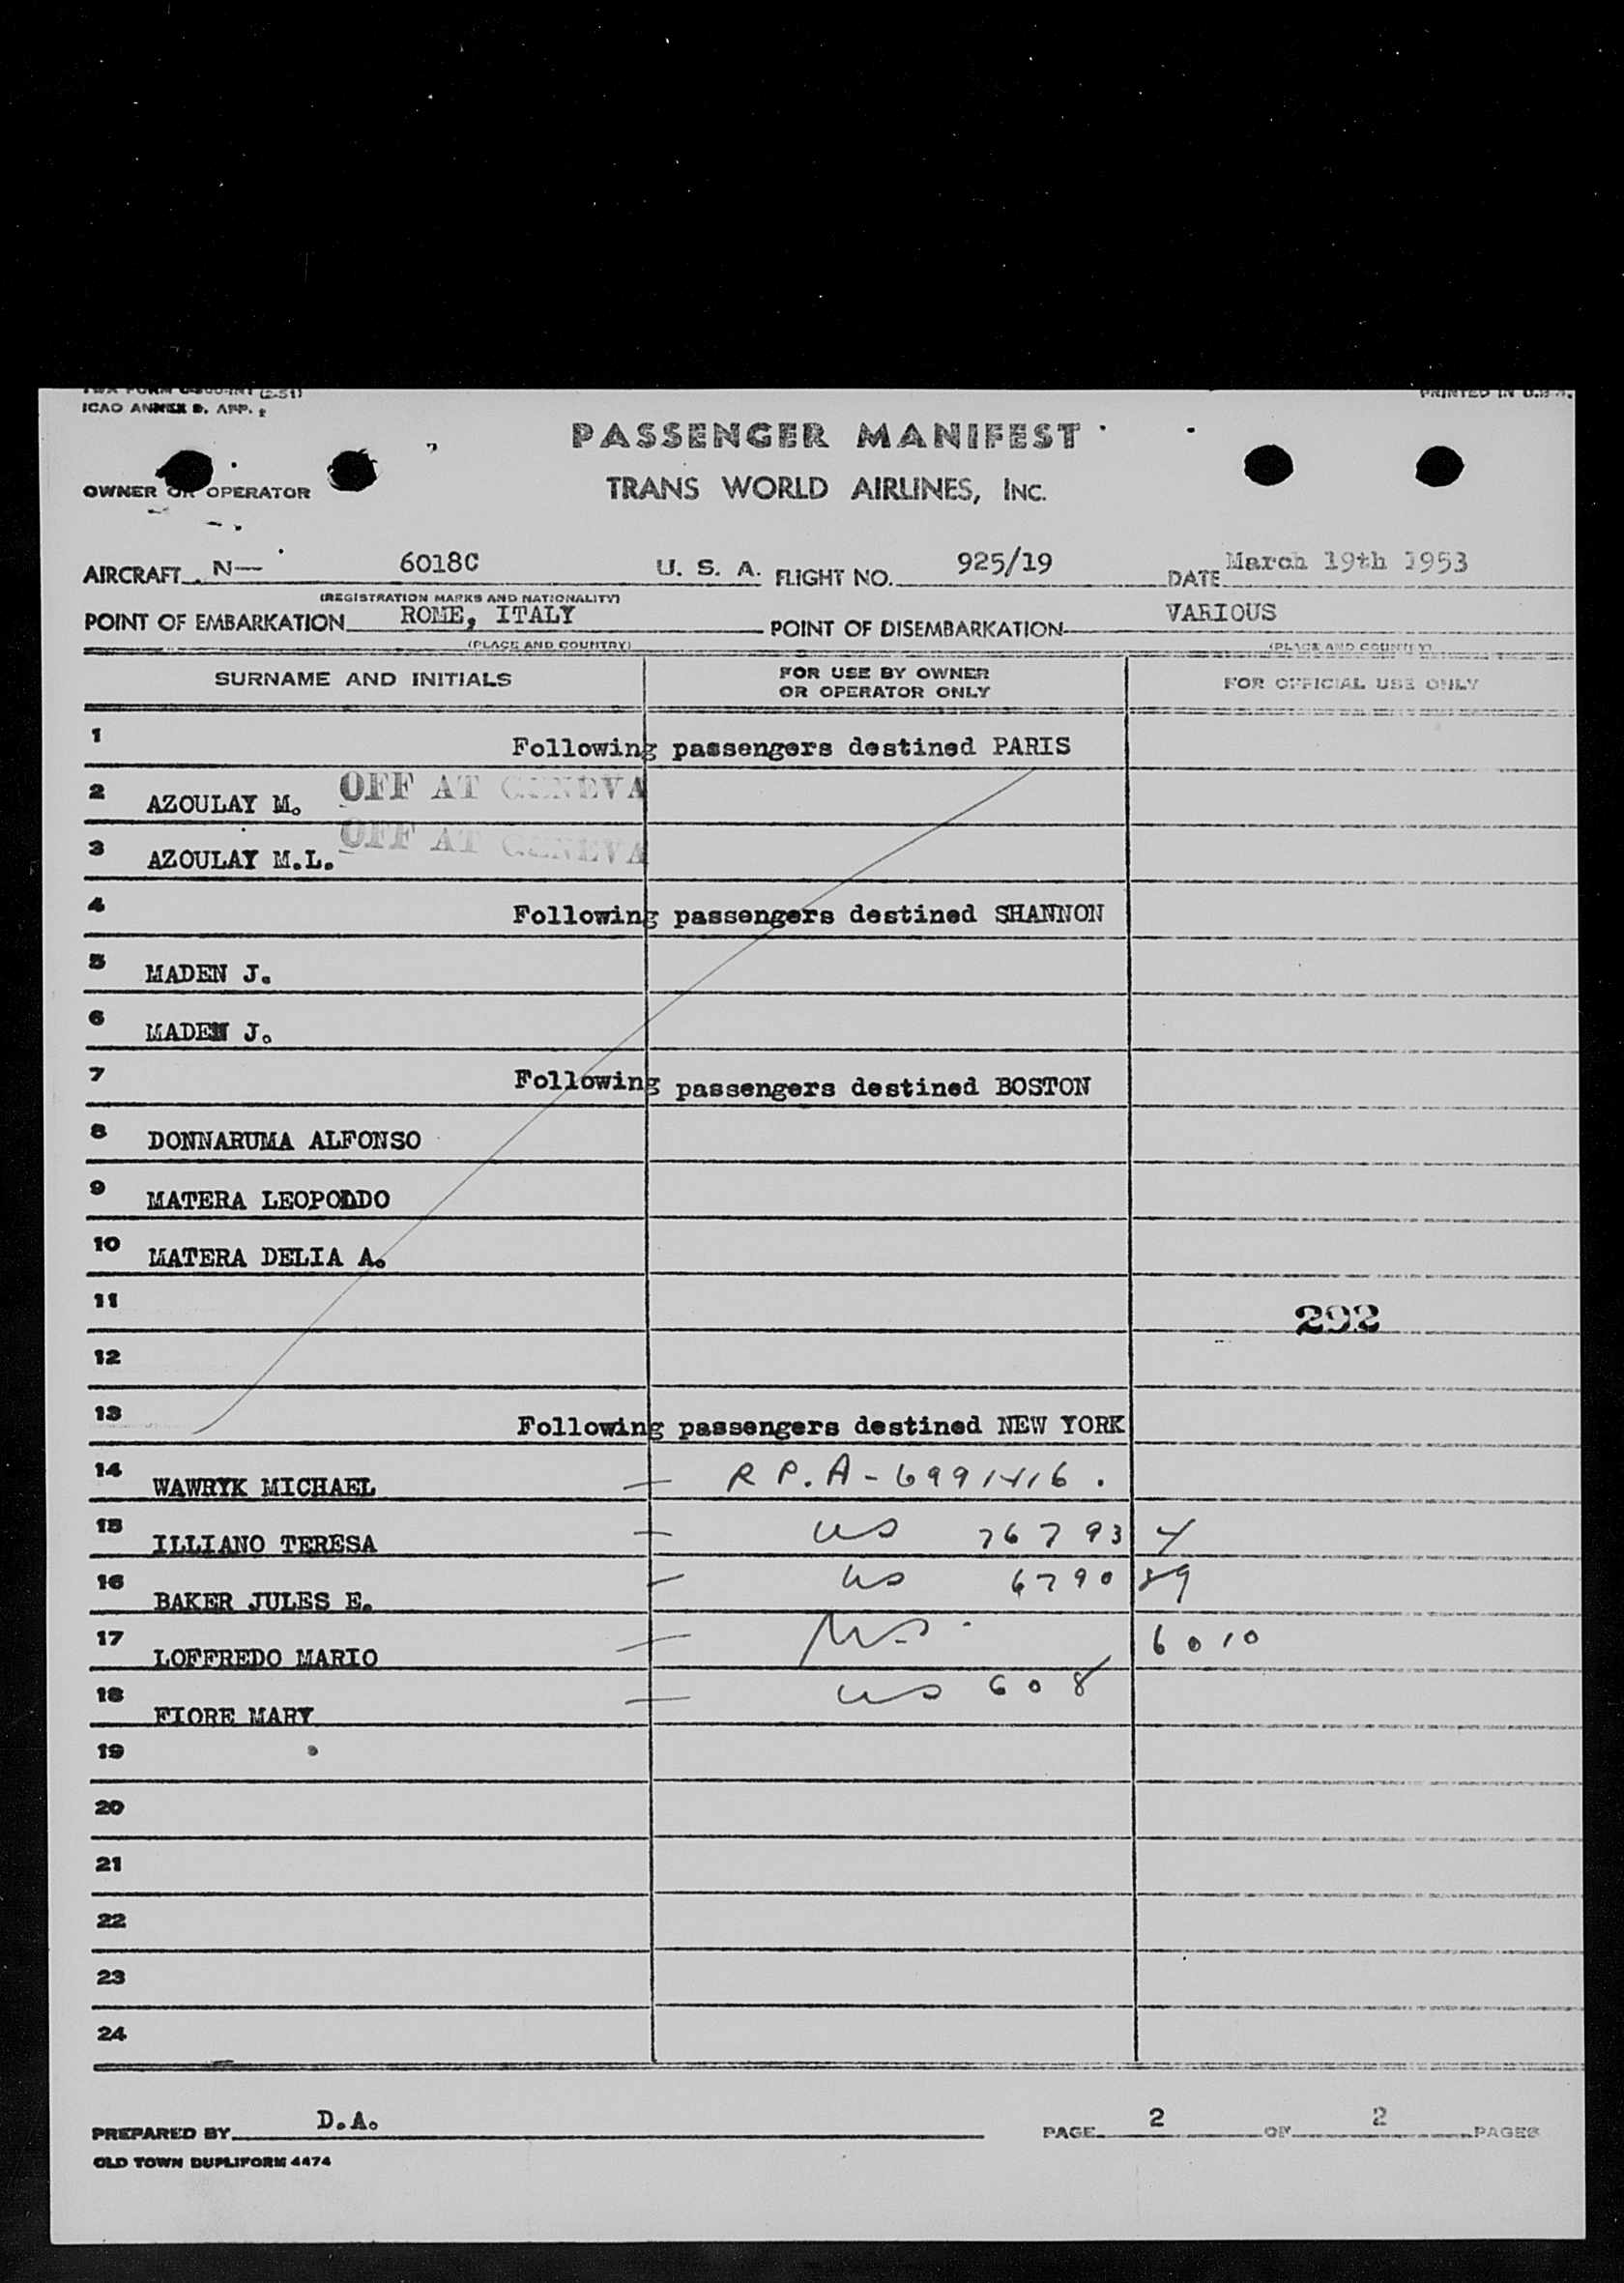 TWA FORM (2-51)
PRINTED IN U.S.A.
ICAO ANNEX 9. APP.
PASSENGER MANIFEST
OWNER OR OPERATOR TRANS WORLD AIRLINES, INC.
AIRCRAFT N— 6018C U. S. A. FLIGHT NO. 925/19 DATE March 19th 1953
(REGISTRATION MARKS AND NATIONALITY)
POINT OF EMBARKATION ROME, ITALY POINT OF DISEMBARKATION VARIOUS
(PLACE AND COUNTRY) (PLACE AND COUNTRY)
SURNAME AND INITIALS FOR USE BY OWNER OR OPERATOR ONLY FOR OFFICIAL USE ONLY
1 Following passengers destined PARIS
2 AZOULAY M. OFF AT GENEVA
3 AZOULAY M.L. OFF AT GENEVA
4 Following passengers destined SHANNON
5 MADEN J.
6 MADEN J.
7 Following passengers destined BOSTON
8 DONNARUMA ALFONSO
9 MATERA LEOPOLDO
10 MATERA DELIA A.
11 292
12
13 Following passengers destined NEW YORK
14 WAWRYK MICHAEL — R P. A - 6991416.
15 ILLIANO TERESA — US 76793 4
16 BAKER JULES E. — US 6790 89
17 LOFFREDO MARIO — 6010
18 FIORE MARY — US 608
19
20
21
22
23
24
PREPARED BY D.A. PAGE 2 OF 2 PAGES
OLD TOWN DUPLIFORM 4474